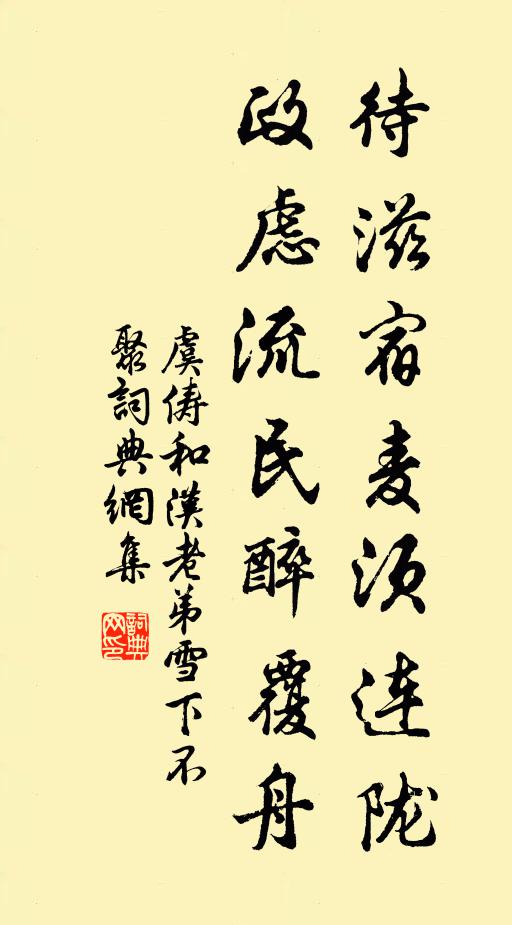 待滋宿麦须连陇
政虑流民醉覆舟
虞俦和汉老弟雪下不
聚词典網集
詞典
网印